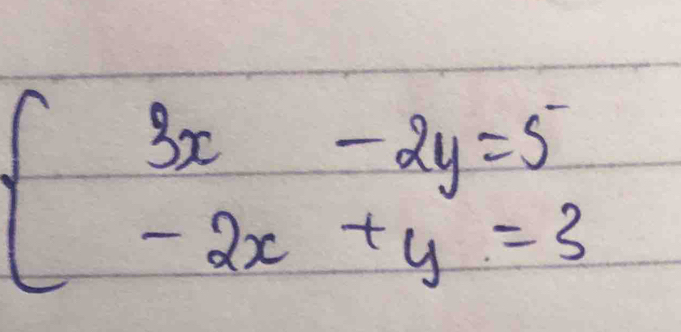 3x - 2y = 5
- 2x + y = 3